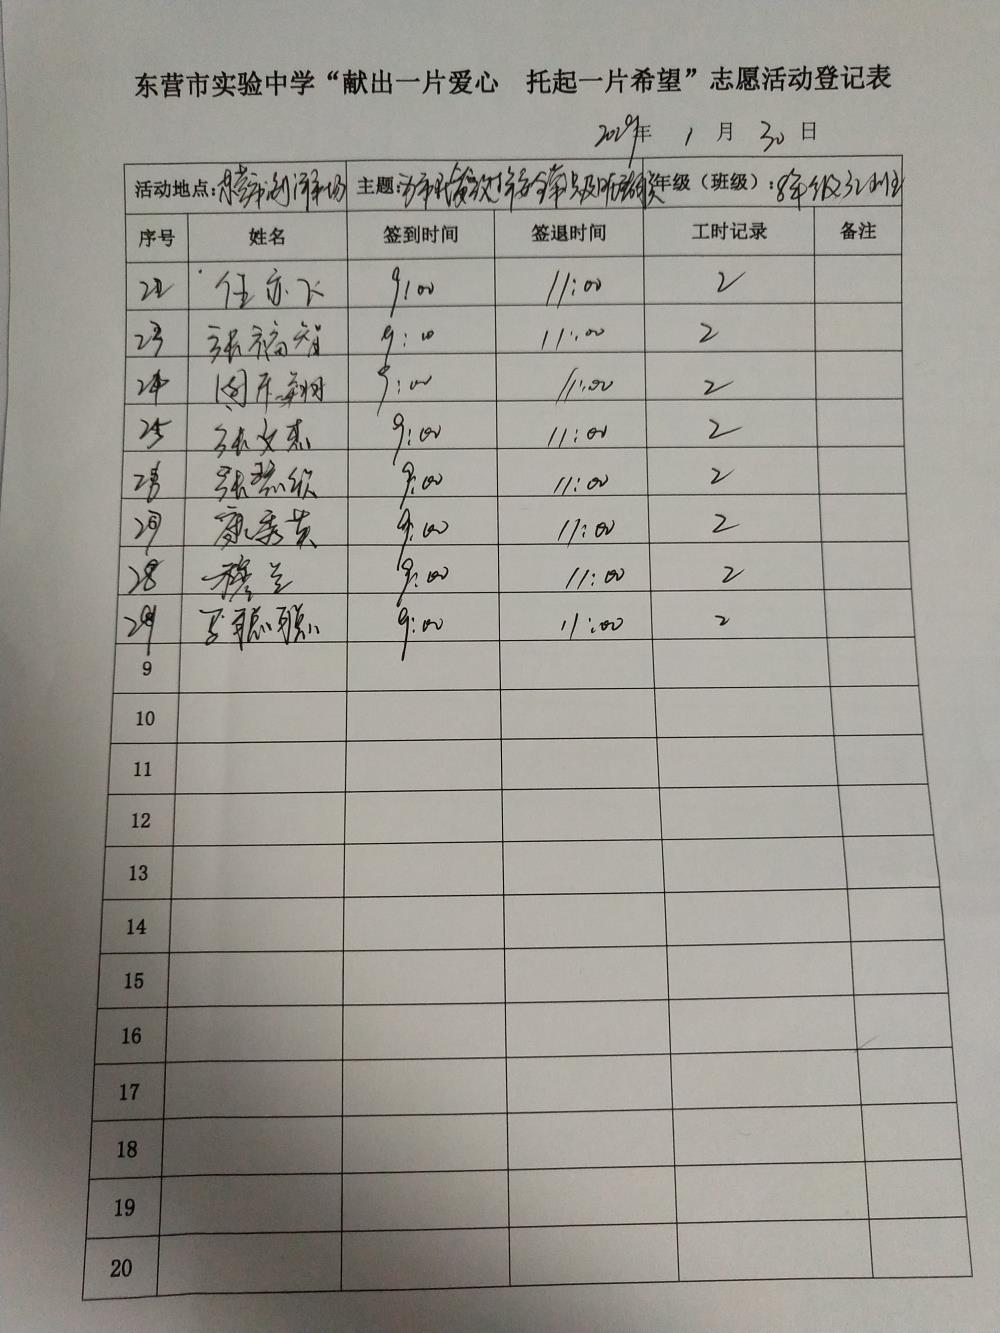 东营市实验中学“献出一片爱心 托起一片希望”志愿活动登记表
年 1 月 30 日
活动地点: 主题: 年级（班级）: 8年级
序号 姓名 签到时间 签退时间 工时记录 备注
22 任亦飞 9:00 11:00 2
23 张福智 9:00 11:00 2
24 9:00 11:00 2
25 张文杰 9:00 11:00 2
26 张 9:00 11:00 2
27 9:00 11:00 2
28 穆兰 9:00 11:00 2
29 聪聪 9:00 11:00 2
9
10
11
12
13
14
15
16
17
18
19
20